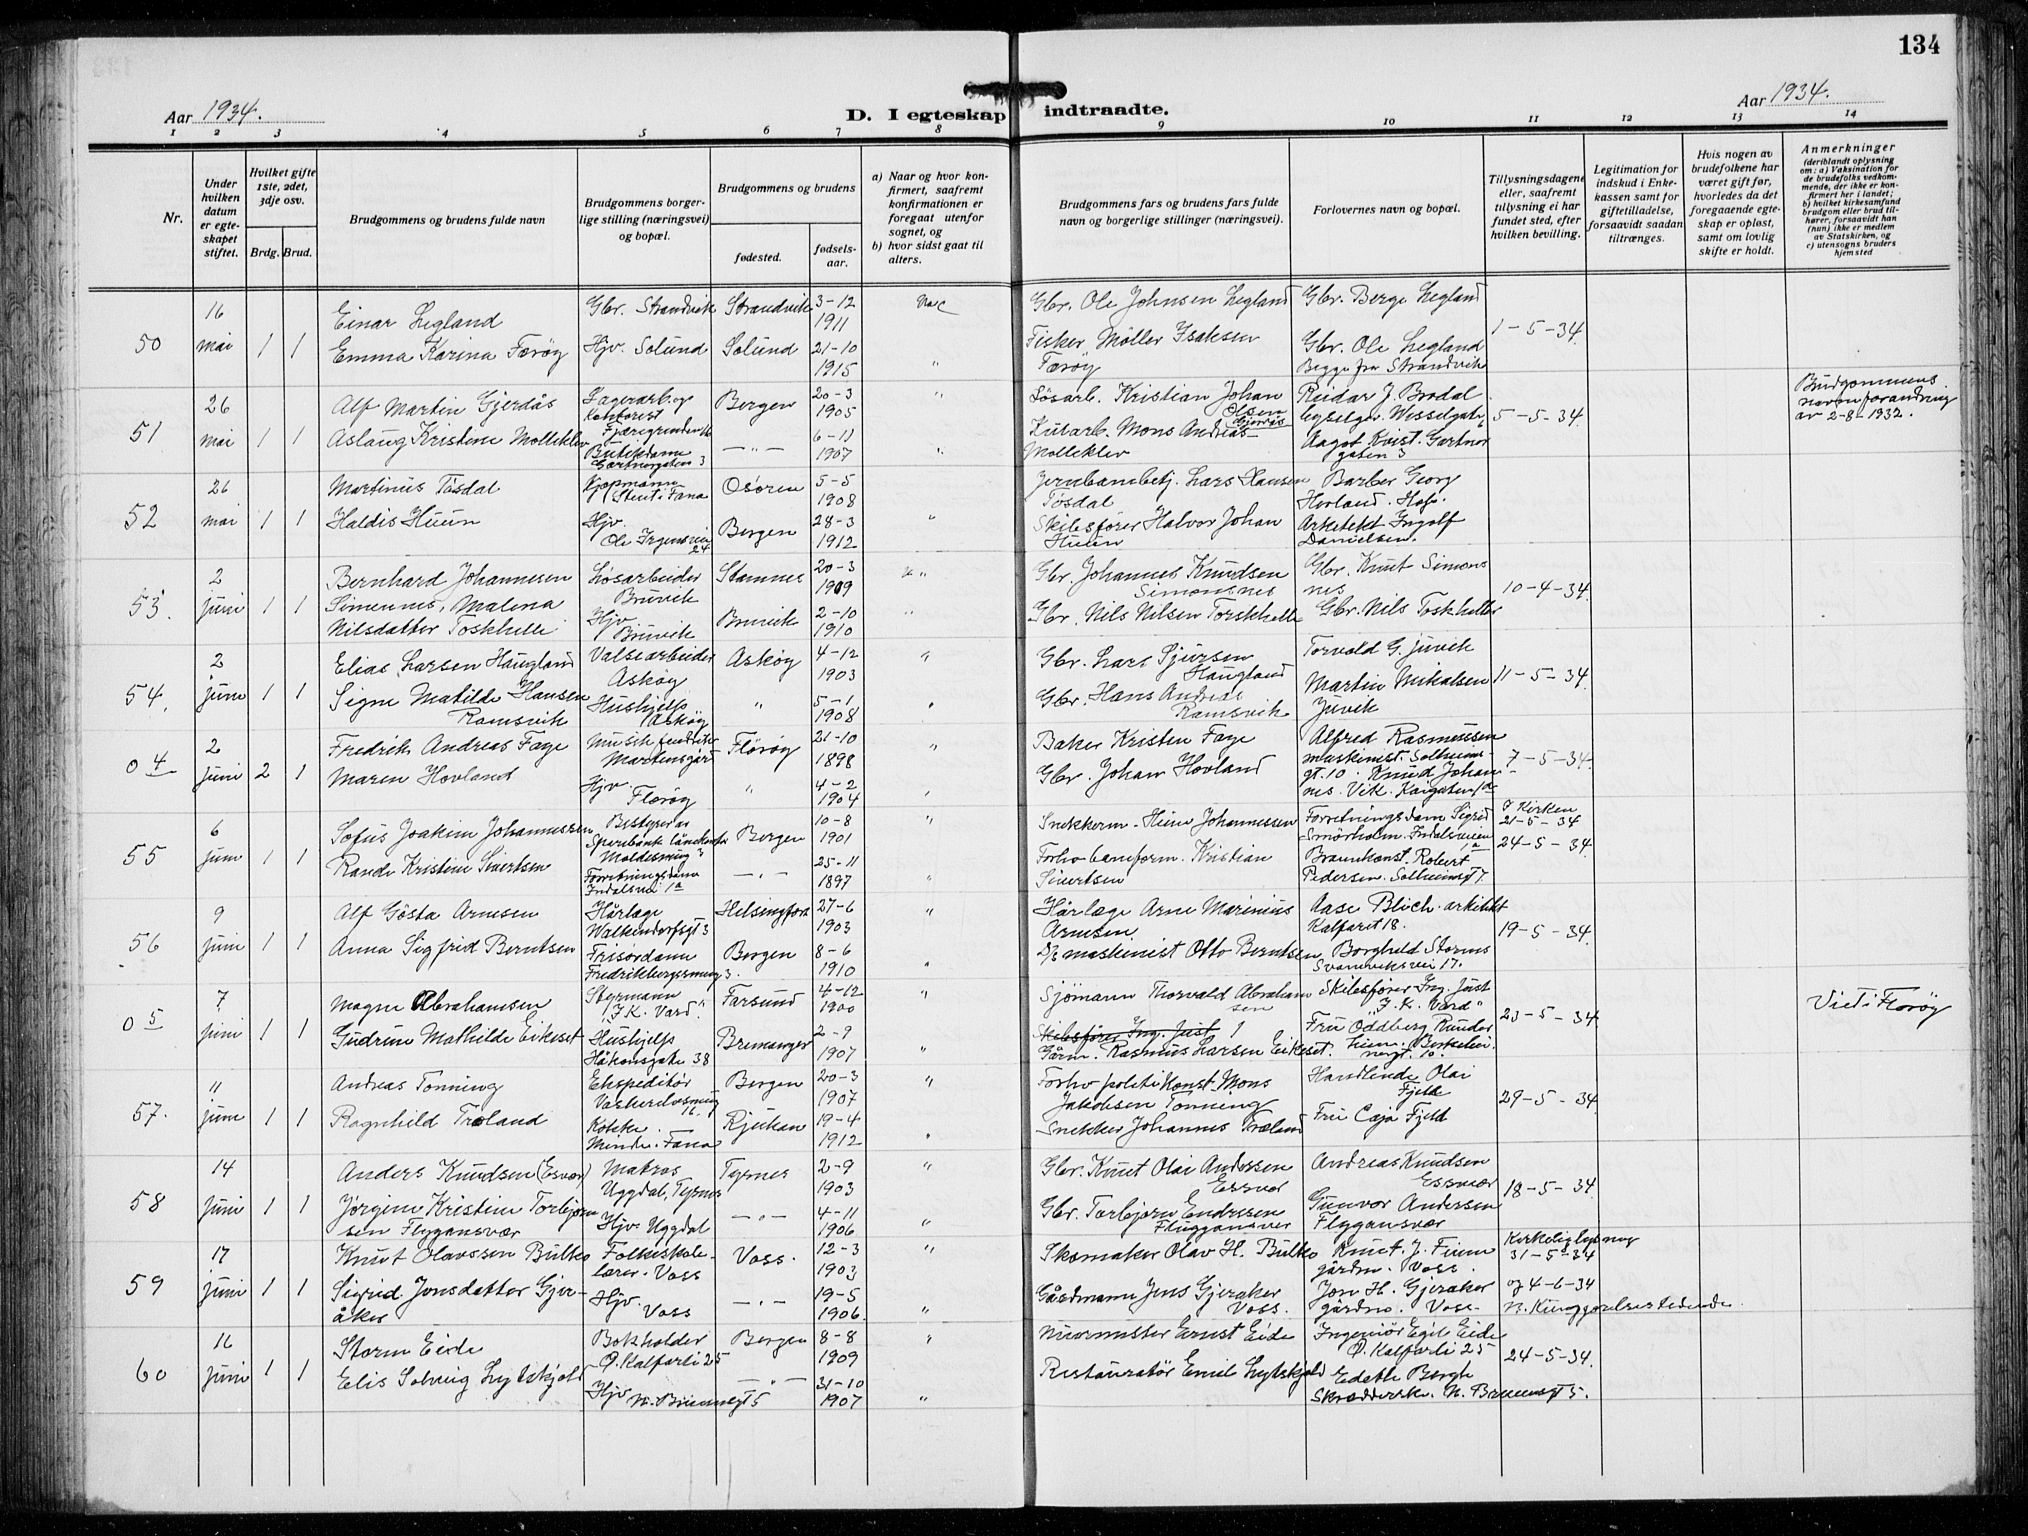 134
Aar 1934.
Aar 1934.
D. I egteskap indtraadte.
1 2 3 4 5 6 7 8 9 10 11 12 13 14
Nr.
Under hvilken datum er egteskapet stiftet.
Hvilket gifte 1ste, 2det, 3dje osv.
Brdg. Brud.
Brudgommens og brudens fulde navn
Brudgommens borgerlige stilling (næringsvei) og bopæl.
Brudgommens og brudens
fødested.
fødselsaar.
a) Naar og hvor konfirmert, saafremt konfirmationen er foregaat utenfor sognet, og
b) hvor sidst gaat til alters.
Brudgommens fars og brudens fars fulde navn og borgerlige stillinger (næringsvei).
Forlovernes navn og bopæl.
Tillysningsdagene eller, saafremt tillysning ei har fundet sted, efter hvilken bevilling.
Legitimation for indskud i Enkekassen samt for giftetilladelse, forsaavidt saadan tiltrænges.
Hvis nogen av brudefolkene har været gift før, hvorledes da det foregaaende egteskap er opløst, samt om lovlig skifte er holdt.
Anmerkninger
(deriblandt oplysning om: a) Vaksination for de brudefolks vedkommende, der ikke er konfirmert her i landet; b) hvilket kirkesamfund brudgom eller brud tilhører, forsaavidt han (hun) ikke er medlem av Statskirken, og c) utensogns bruders hjemsted
50 16 mai 1 1
Einar Legland Gbr. Strandvik Strandvik 3-12 1911
Emma Karina Færøy Hjv. Solund Solund 21-10 1915
Gbr. Ole Johnsen Legland
Fisker Møller Isaksen Færøy
Gbr. Berge Legland
Gbr. Ole Legland
Begge fra Strandvik
1-5-34.
51 26 mai 1 1
Alf Martin Gjerdås Lagerarb. og Bergen 20-3 1905
Aslaug Kristine Molleklev Butikdame Gartnergaten 3 6-11 1907
Løsarb. Kristian Johan Olsen Gjerdås
Mons Andreas Molleklev
Reidar J. Brodal
Aagot Kvist. Gartnergaten 3
5-5-34.
Brudgommens navneforandring av 2-8-1932.
52 26 mai 1 1
Martinus Tøsdal Kjøpmann Fana Osøren 5-5 1908
Haldis Huun Hjv. Ole Irgensvei 24 Bergen 28-3 1912
Jernbanebetj. Lars Hansen Tøsdal
Skibsfører Halvor Johan Huun
Barber Georg Hovland. Hop.
Arkitekt Ingolf Danielsen.
53. 2 juni 1 1
Bernhard Johannesen Simonnes, Løsarbeider Bruvik Stamnes 20-3 1909
Malena Nilsdatter Toskhelle Hjv. Bruvik Bruvik 2-10 1910
Gbr. Johannes Knudsen Simonsnes
Gbr. Nils Nilsen Torskhelle
Gbr. Knut Simonsnes
Gbr. Nils Toskhelle
10-4-34.
54. 2 juni 1 1
Elias Larsen Haugland Valsearbeider Askøy Askøy 4-12 1903
Signe Matilde Hansen Ramsvik Hushjelp Askøy " 5-1 1908
Gbr. Lars Sjursen Haugland
Gbr. Hans Andreas Ramsvik
Torvald G. Juvik
Martin Mikalsen Juvik
11-5-34.
04 2 juni 2 1
Fredrik Andreas Fage Martensgår Florøy 21-10 1898
Maren Hovland Hjv. Florøy " 4-2 1904
Baker Kristen Fage
Gbr. Johan Hovland
Alfred Rasmussen maskinist. Solheimsgt. 10. Knud Johannes Vik. Kaigaten 1a
7-5-34.
55 6 juni 1 1
Sofus Joakim Johannessen Bestyrer av Bergen 10-8 1901
Rande Kristine Sivertsen Forretningsdame Indalsvei 1a 25-11 1897
Snekkerm. Heine Johannessen
Forhv. baneform. Kristian Sivertsen
Forretningsdame Sigrid Smörholm. Indalsveien 1a
Brannkonst. Robert Pedersen. Solheimsgt 7.
I Kirken 21-5-34
24-5-34.
56 9 juni 1 1
Alf Gösta Arnesen Hårlæge Walkendorfsgt 3 Helsingfors 27-6 1903
Anna Sigfrid Berntsen Frisørdame Fredriksbergssmug 3. Bergen 8-6 1910
Hårlæge Arne Marinius Arnesen
D/S maskinist Otto Berntsen
Aase Blich. arkitekt Kalfaret 18.
Borghild Storms Svaneviksvei 17.
19-5-34.
05 7 juni 1 1
Magne Abrahamsen Styrmann "J. K. Vard" Farsund 4-12 1900
Gudrun Mathilde Eikeset Hushjelp Håkonsgate 38 Bremanger 2-9 1907
Sjömann Thorvald Abrahamsen
Skibsfører Ing. Just
Gårm. Rasmus Larsen Eikeset.
Skibsfører Ing. Just "J. K. Vard"
Fru Oddberg
23-5-34.
Viet i Florøy
57. 11 juni 1 1
Andreas Tonning Ekspeditør Bergen 20-3 1907
Ragnhild Træland Kokke. Minde. Fana Rjukan 19-4 1912
Forhv. politikonst. Mons Jakobsen Tonning
Snekker Johannes Træland
Handlende Olai Fjelde
Fru Caja Fjeld
29-5-34
58 14 juni 1 1
Anders Knudsen (Esvær) Matros Uggdal, Tysnes Tysnes 2-9 1903
Jörgine Kristine Torbjörnsen Flygansvær Hjv. Uggdal 4-11 1906
Gbr. Knut Olai Andersen Essvær
Gbr. Torbjørn Endresen Fluggansvær
Andreas Knudsen Essvær
Gunvor Andersen Flygansvær
18-5-34
59 17 juni 1 1
Knut Olavssen Bulko Folkeskolelærer. Voss Voss. 12-3 1903
Sigrid Jonsdatter Gjeråker Hjv. Voss 19-5 1906.
Skomaker Olav H. Bulko
Gårdmann Jens Gjeraker Voss.
Knut. J. Finne gårdm. Voss.
Jon H. Gjeraker gårdm. Voss
Kirkelig lysning 31-5-34
og 4-6-34
60 16 juni 1 1
Storm Eide Bokholder Ø. Kalfarli 25 Bergen 8-8 1909
Elis Solveig Lytskjold Hjv. 31-10 1907
Murmester Ernst Eide
Restauratör Emil Lytskjold
Ingeniør Egil Eide Ø. Kalfarli 25
Edeth Bergh
24-5-34.